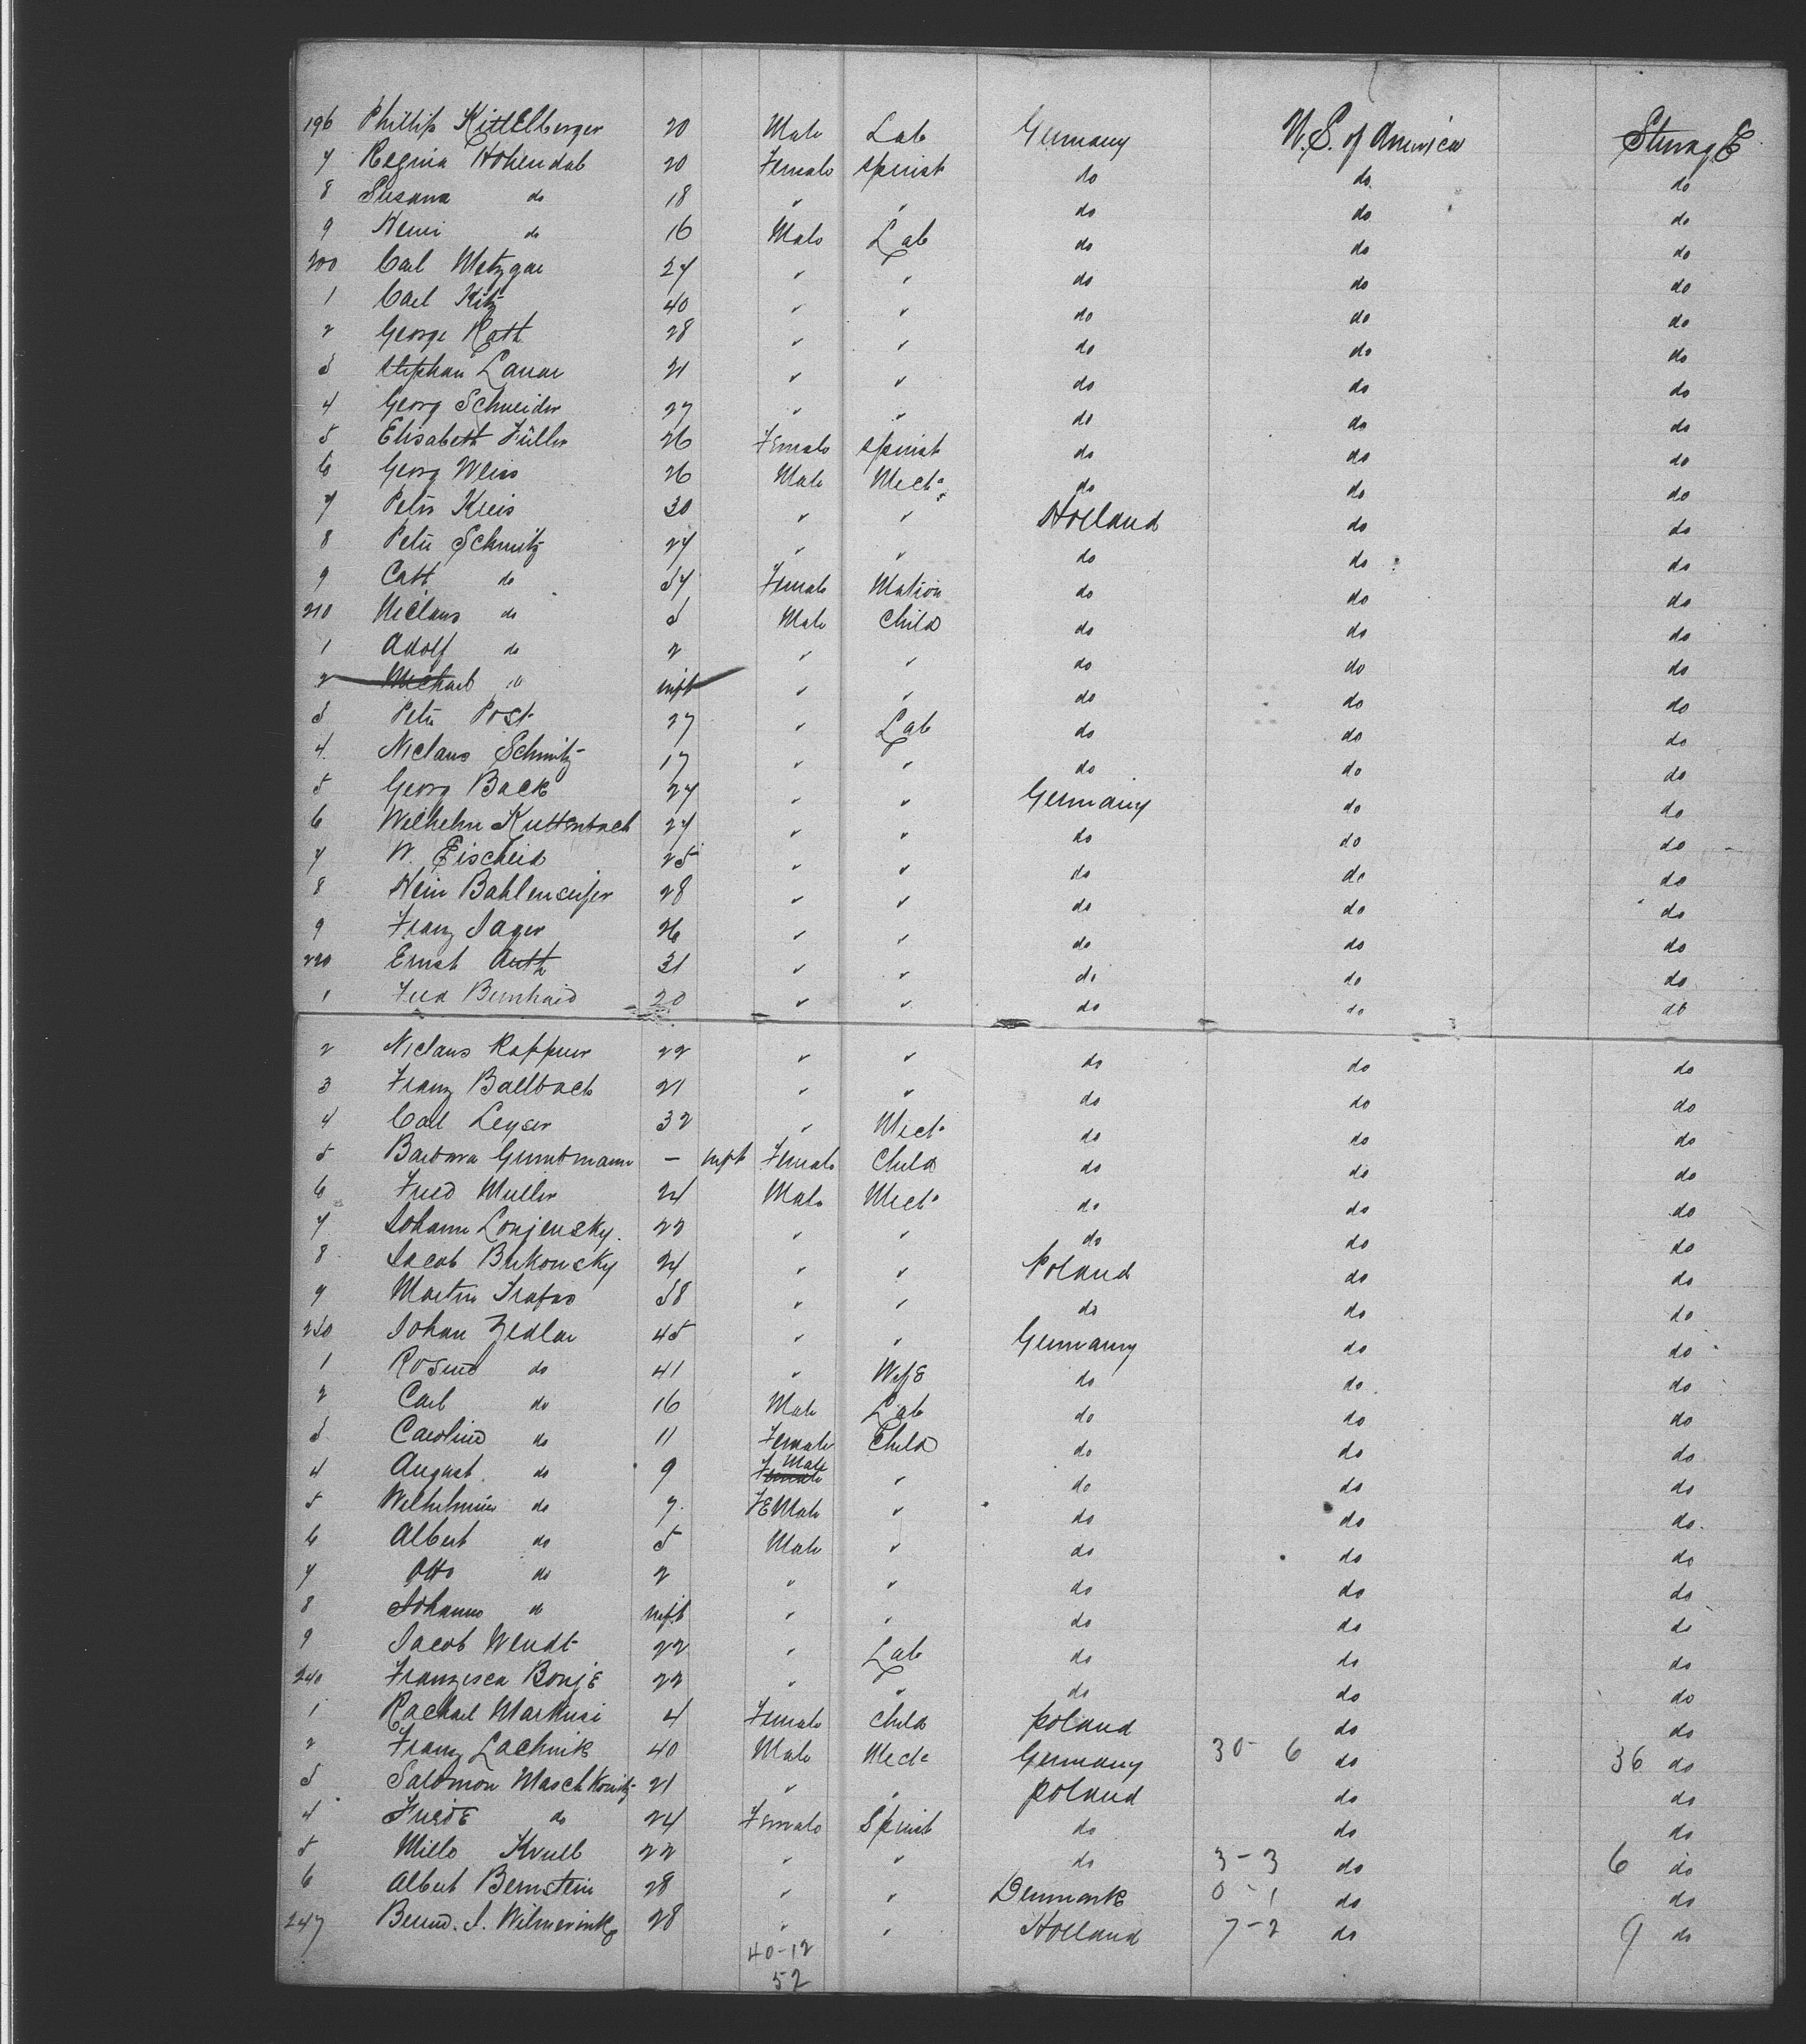 196 Phillip KittElberger 20 Male Lab Germany U.S. of America SteuragE
7 Regina Hohendab 20 Female Spinst do do do
8 Susana do 18 " " do do do
9 Henri do 16 Male Lab do do do
200 Carl Metzgar 27 " " do do do
1 Carl Kitz 40 " " do do do
2 George Rath 28 " " do do do
3 Stephan Lanar 21 " " do do do
4 Georg Schneider 27 " " do do do
5 Elisabeth Füller 26 Female Spinst do do do
6 Georg Weiss 26 Male Mech do do do
7 Peter Kreis 30 " " Holland do do
8 Peter Schmitz 27 " " do do do
9 Cath do 37 Female Matron do do do
210 Niclaus do 3 Male Child do do do
1 Adolf do 2 " " do do do
2 Michael do inft " " do do do
3 Peter Post 27 " Lab do do do
4 Niclaus Schmitz 17 " " do do do
5 Georg Back 27 " " Germany do do
6 Wilhelm Kuttenbach 27 " " do do do
7 W. Eischeid 25 " " do do do
8 Hein Bahlenseifer 28 " " do do do
9 Franz Sager 26 " " do do do
220 Ernst Auth 31 " " do do do
1 Fred Bernhard 20 " " do do do
2 Niclaus 22 " " do do do
3 Franz Ballbach 21 " " do do do
4 Carl Leyser 32 " Mech do do do
5 Barbara Guntmann — inft Female Child do do do
6 Fred Muller 24 Male Mech do do do
7 Johann Lonjensky 22 " " do do do
8 Jacob Bukowsky 24 " " Poland do do
9 Martin Trafas 38 " " do do do
230 Johan Zedlar 45 " " Germany do do
1 Rosine do 41 " WifE do do do
2 Carl do 16 Male Lab do do do
3 Caroline do 11 Female Child do do do
4 August do 9 Female Male " do do do
5 Wilhelmine do 7 FEMale " do do do
6 Albert do 5 Male " do do do
7 Otto do 2 " " do do do
8 Johanns do inft " " do do do
9 Jacob Wendt 22 " Lab do do do
240 Franzisca BonjE 22 " " do do do
1 Rachael Markusi 4 Female Child Poland do do
2 Franz Lachnik 40 Male Mech Germany 30-6 do 36 do
3 Salomon Maschkowitz 21 " " Poland do do
4 FriedE do 24 Female Spinst do do do
5 Mille Krull 22 " " do 3-3 do 6 do
6 Albert Bernstein 28 " " Denmark 0-1 do do
247 Bernd. J. Wilmerink 28 " " Holland 7-2 do 9 do
40-12
52